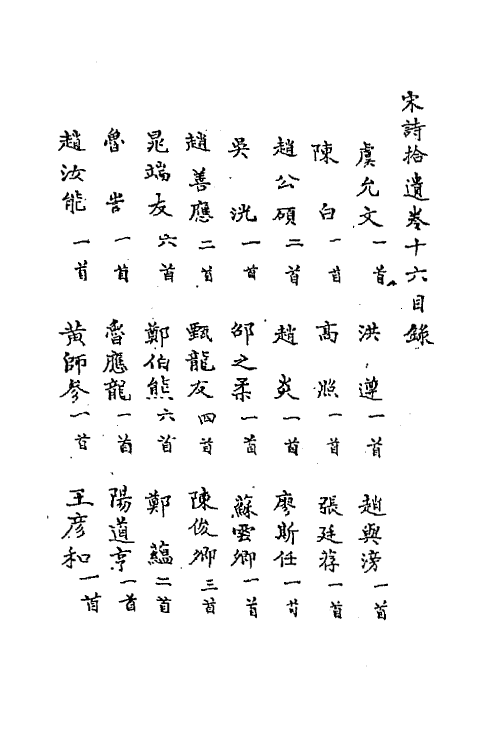 宋詩拾遺卷十六目錄
虞允文一首 洪遵一首 趙與滂一首
陳白一首 高照一首 張廷荐一首
趙公碩二首 趙炎一首 廖斯任一首
吳洸一首 邵之柔一首 蘇雲卿一首
趙善應二首 甄龍友四首 陳俊卿三首
晁端友六首 鄭伯熊六首 鄭蘊二首
魯訔一首 魯應龍一首 陽道亨一首
趙汝能一首 黃師參一首 王彥和一首